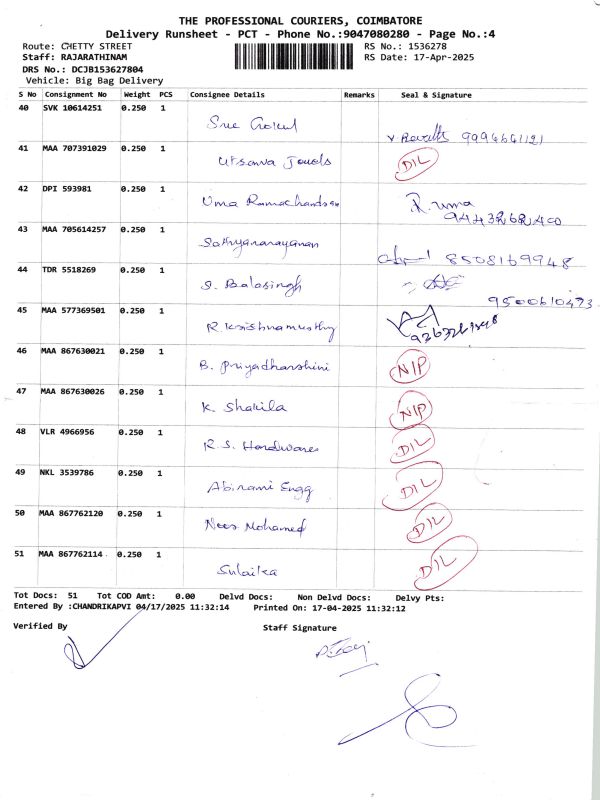 THE PROFESSIONAL COURIERS, COIMBATORE
Delivery Runsheet - PCT - Phone No.:9047080280 - Page No.:4
Route: CHETTY STREET
RS No.: 1536278
Staff: RAJARATHINAM
RS Date: 17-Apr-2025
DRS No.: DCJB153627804
Vehicle: Big Bag Delivery
S No Consignment No Weight PCS Consignee Details Remarks Seal & Signature
40 SVK 10614251 0.250 1
Sree Gokul
9994641121
41 MAA 707391029 0.250 1
Utsanva Jewels D/L
42 DPI 593981 0.250 1
Uma Ramachandran R. Uma
43 MAA 705614257 0.250 1
Sathyanarayanan
8508169948
44 TDR 5518269 0.250 1
S. Balasingh
9500610473
45 MAA 577369501 0.250 1
R Krishnamurthy
46 MAA 867630021 0.250 1
B. Priyadharshini N/P
47 MAA 867630026 0.250 1
K. Shakila N/P
48 VLR 4966956 0.250 1
R.S. Hardwares D/L
49 NKL 3539786 0.250 1
Abirami Engg D/L
50 MAA 867762120 0.250 1
Mohamed D/L
51 MAA 867762114 0.250 1
Sulaika D/L
Tot Docs: 51 Tot COD Amt: 0.00 Delvd Docs: Non Delvd Docs: Delvy Pts:
Entered By :CHANDRIKAPVI 04/17/2025 11:32:14 Printed On: 17-04-2025 11:32:12
Verified By Staff Signature